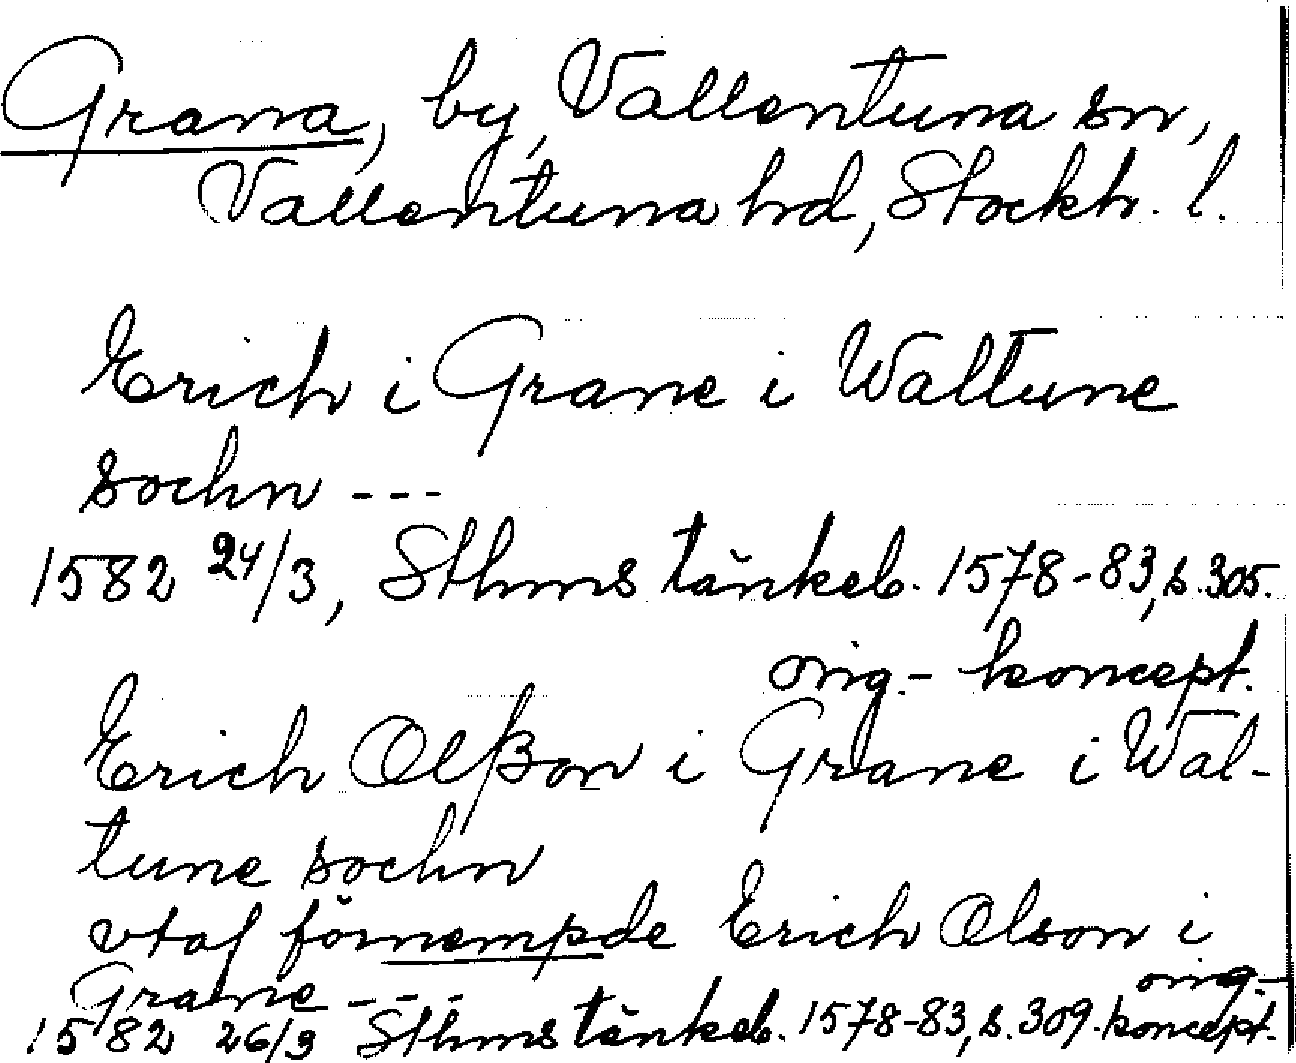 Grana, by, Vallentuna sn,
Vallentuna hd, Stockh. l.
Erich i Grane i Waltune
sochn ---
1582 24/3, Sthms tänkeb. 1578-83, s. 305.
orig.- koncept.
Erich Olßon i Grane i Wal-
tune sochn
vtaf förnempde Erich Olson i
Grane --- orig.-
1582 26/3 Sthms tänkeb. 1578-83, s. 309. koncept.